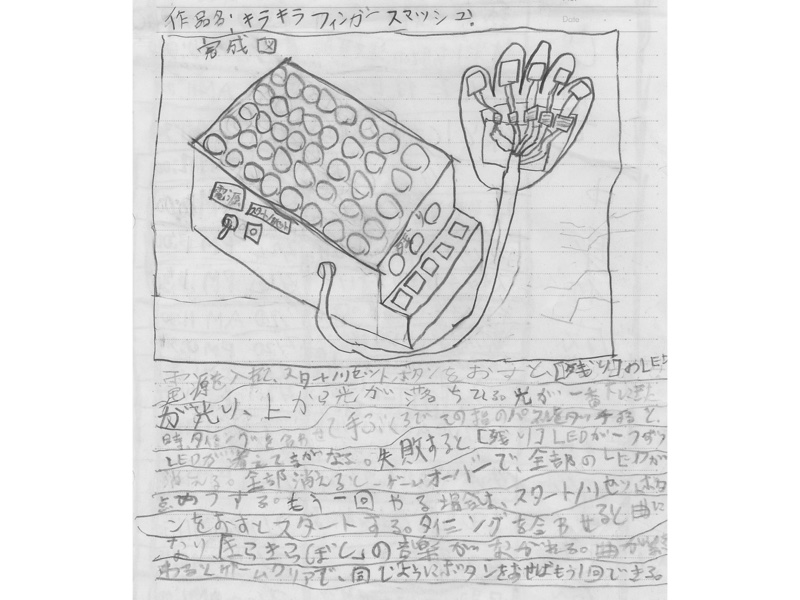 作品名:キラキラフィンガースマッシュ!
Date
完成図
電源
スタート/リセット
残り
電源を入れて、スタート/リセットボタンをおすと、[残り]のLED
が光り、上から光が落ちてくる。光が一番下に来た
時タイミングを合わせて手ぶくろで その指の タッチすると、
LEDが 音がなる。失敗すると[残り]LEDが一つずつ
消える。全部消えるとゲームオーバーで、全部のLEDが
点めつする。もう一回やる場合は、スタート/リセットボタ
ンをおすとスタートする。タイミングを合わせると曲に
なり『きらきらぼし』の音楽がながれる。曲が終
わるとゲームクリアで、同じようにボタンをおせばもう1回できる。